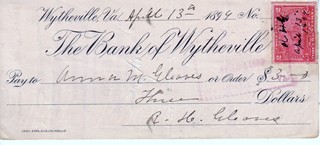 Wytheville, Va. April 13th 1899 No.
The Bank of Wytheville
Pay to Anna M. Gleaves or Order $3
Three Dollars
R. H. Gleaves